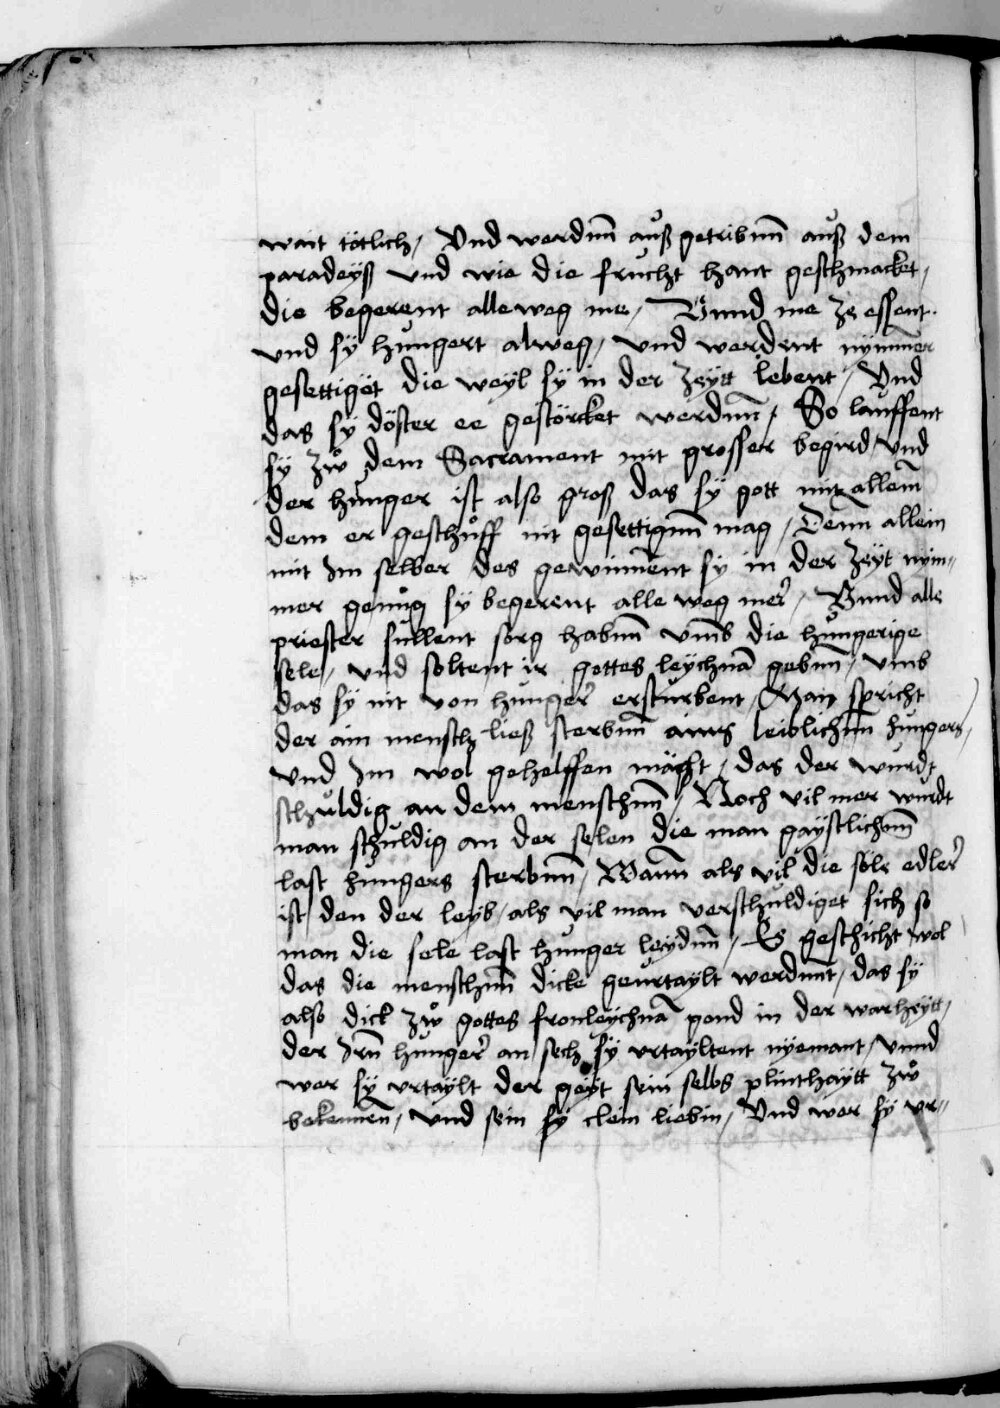 wart tötlich / Vnd werdenn auß getribenn auß dem
paradeyß vnd wie die frucht hant geschmacket /
die begerent alleweg me / Vnnd me ze essent.
vnd sÿ hungert alweg / vnd werdent nÿmmer
gesettigöt die weyl sÿ in der zeÿtt lebent / Vnd
das sÿ döster ee gestörcket werdenn / So lauffent
sÿ zuͦ dem Sacrament mit grosser begird / vnd
der hunger ist also groß das sÿ gott mit allem
dem er geschuͦff nit gesettigenn mag / Denn allein
mit Jm selber des gewinnent sÿ in der zeÿt nÿm-
mer genuͦg sÿ begerent alle weg mer / Vnnd alle
priester sullent sorg habenn vmb die hungerige
sele / vnd soltent ir gottes leÿchnā gebenn / vmb
das sÿ nit von hunger ersturbent / Man spricht
der ain mensch ließ sterbenn ains leiblichenn hungers /
vnd Jm wol gehelffen möcht / das der wurdt
schuldig an dem menschenn / Noch vil mer wurdt
man schuldig an der selen die man gaÿstlichenn
last hungers sterbenn / Wann als vil die sele edler
ist den der leyb / als vil man verschuldiget sich so
man die sele last hunger leydenn / Es geschicht wol
das die menschenn dicke geurtaylt werdennt / das sÿ
also dick zuͦ gottes fronleychnā gond in der warheÿtt /
der Jrn hunger an sech sÿ vrtayltent nyemant / vnnd
wer sÿ vrtaÿlt der geÿt sein selbs plinthaÿtt zuͦ
bekennen / vnd sein sÿ clein liebin / Vnd wer sÿ vr-